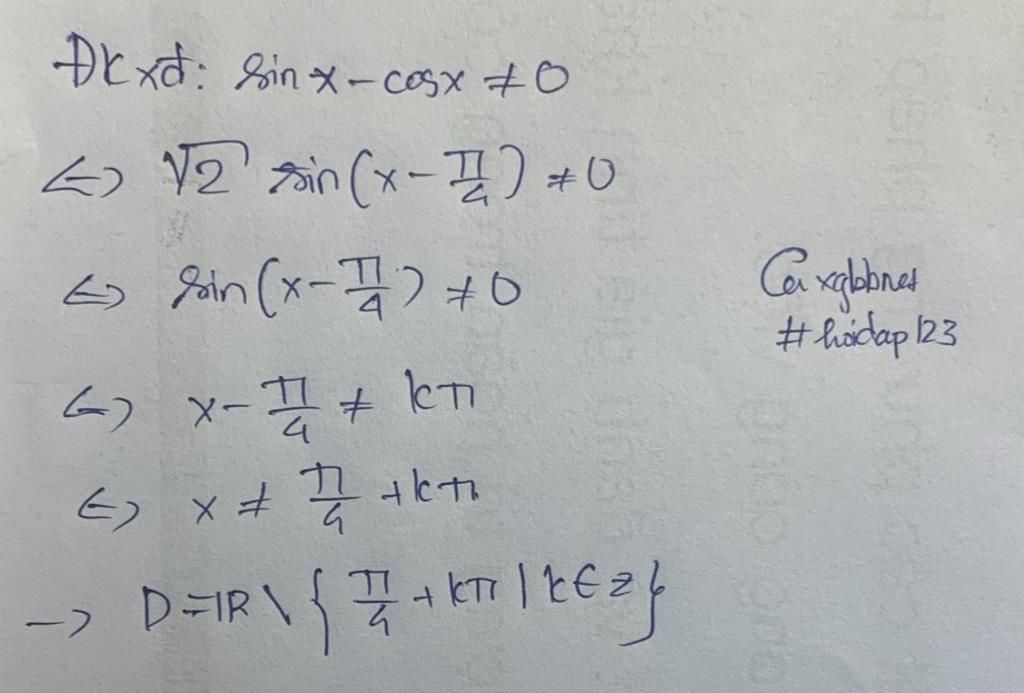 ĐKxđ: sin x - cosx ≠ 0
<=> √2 sin(x - π/4) ≠ 0
<=> sin(x - π/4) ≠ 0
<=> x - π/4 ≠ kπ
<=> x ≠ π/4 + kπ
-> D = ℝ \ { π/4 + kπ | k ∈ z }
#hoidap123